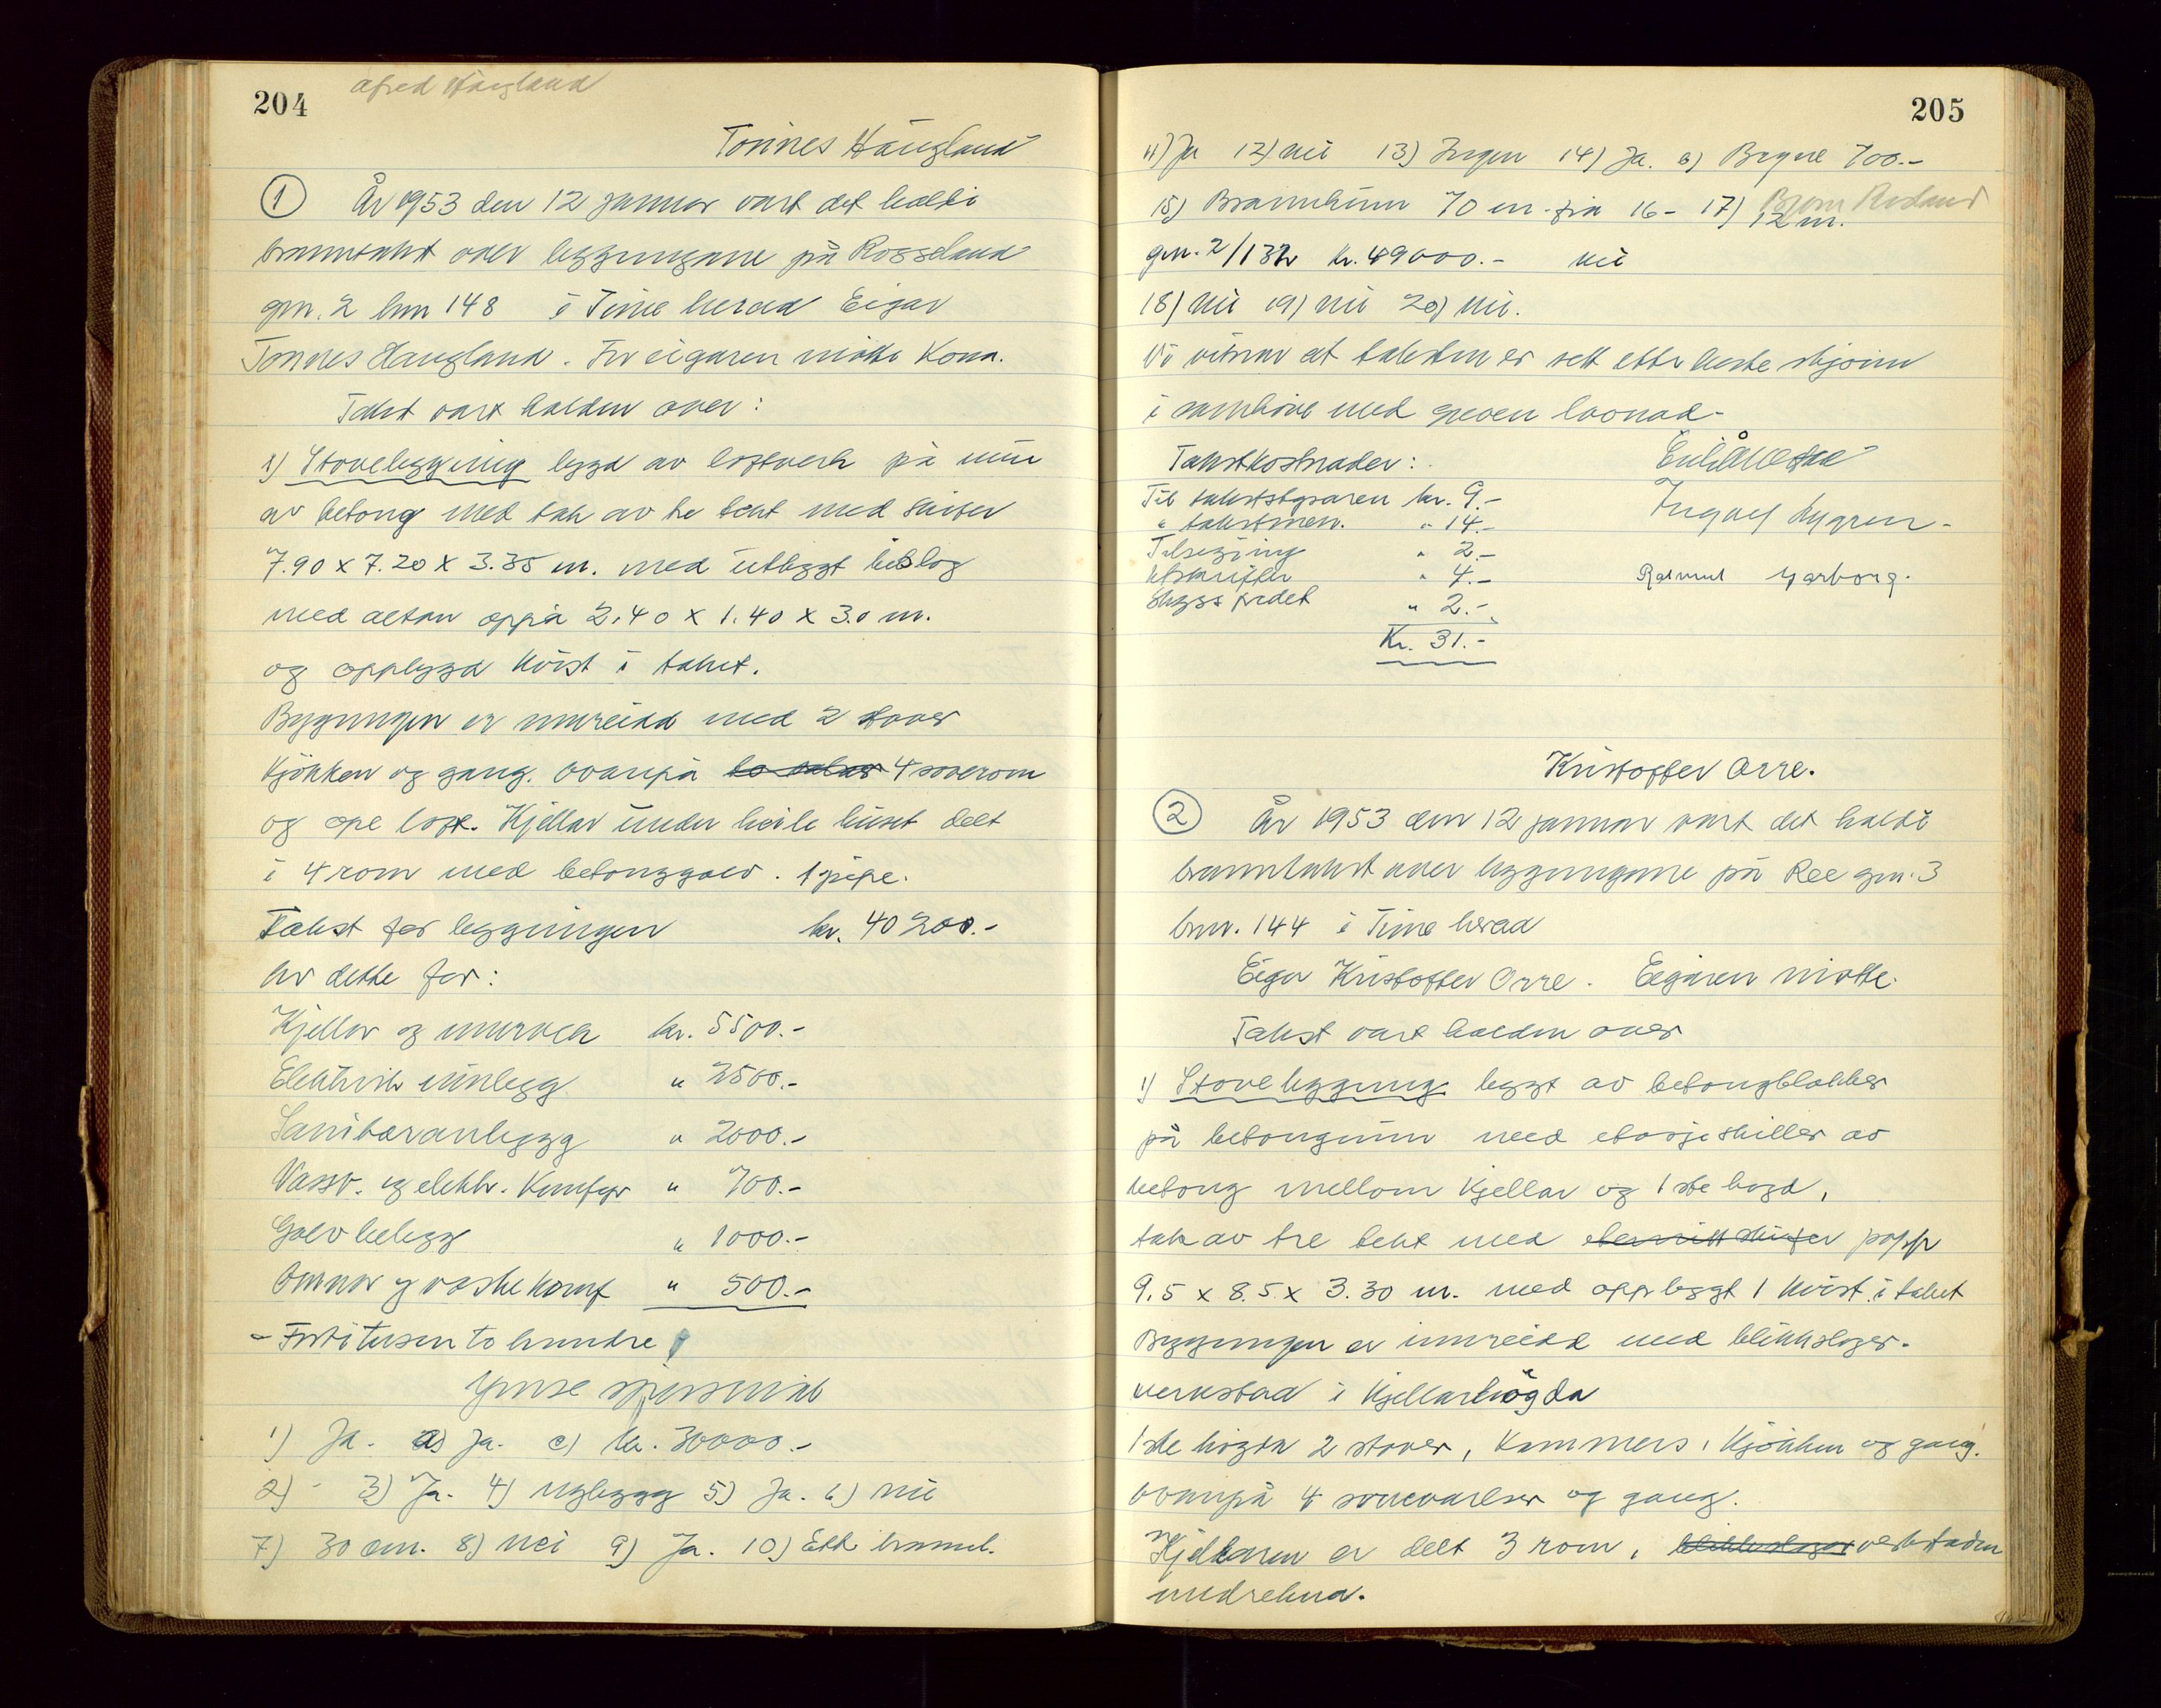 204
Tönnes Haugland
1 År 1953 den 12 januar vart det haldi
branntakst over byggingane på Rosseland
gnr. 2 bnr 148 i Time herad Eigar
Tönnes Haugland. For eigaren mötte Kona.
Takst vart halden over:
1) Stovebygging bygd av loftverk på mur
av betong med tak av tre tekt med skifer
7.90 x 7.20 x 3.35 m. med utbyggt bislag
med altan oppå 2.40 x 1.40 x 3.0 m.
og oppbygd kvist i taket.
Bygningen er innreidd med 2 stover
kjökken og gang. ovanpå 4 soverom
og ope loft. Kjellar under heile huset delt
i 4 rom med betonggolv. 1 pipe.
Takst for byggingen kr. 40 200.-
Av dette for:
Kjellar og murverk kr. 5500.-
Elektrisk innlegg " 2500.-
Sanitæranlegg " 2000.-
Vassv. og elektr. Komfyr " 700.-
Golvbelegg " 1000.-
Omnar og vaskekomf " 500.-
- Förtitusen to hundre
Ymse spursmål
1) Ja. a) Ja. c) kr. 30000.-
2) - 3) Ja. 4) Nybygg 5) Ja. 6) nei
7) 30 cm. 8) Nei 9) Ja. 10) Ett brannmel.
205
11) Ja 12) nei 13) Ingen 14) Ja. a) Bryne 700.-
15) Brannhuun 70 m. frå 16- 17) 12 m.
gnr. 2/132 kr. 49000.- nei
18) Nei 19) nei 20) Nei.
Vi vitnar at taksten er sett etter beste skjönn
i samhöve med gjeven lovnad-
Takstkostnader:
Til takststyraren kr. 9.-
" takstmen. " 14.-
Tilsegjing " 2.-
Utskrifter " 4.-
Skyss " 2.-
Kr. 31.-
Rasmus Garborg.
Kristoffer Orre.
2 År 1953 den 12 januar vart det haldi
branntakst over byggingane på Ree gnr. 3
bnr. 144 i Time herad
Eigar Kristoffer Orre. Eigaren mötte.
Takst vart halden over
1) Stovebygging bygt av betongblokker
på betongmur med etasjeskiller av
betong mellom kjellar og 1ste högd,
tak av tre tekt med eternitt skifer papp
9.5 x 8.5 x 3.30 m. med oppbyggt 1 kvist i taket
Byggingen er innreidd med blikkslager-
verkstad i kjellarhögda
1ste högda 2 stover, kammers, kjökken og gang.
ovanpå 4 soveværelser og gang.
Kjellaren er delt 3 rom, blikkslager verkstaden
medrekna.